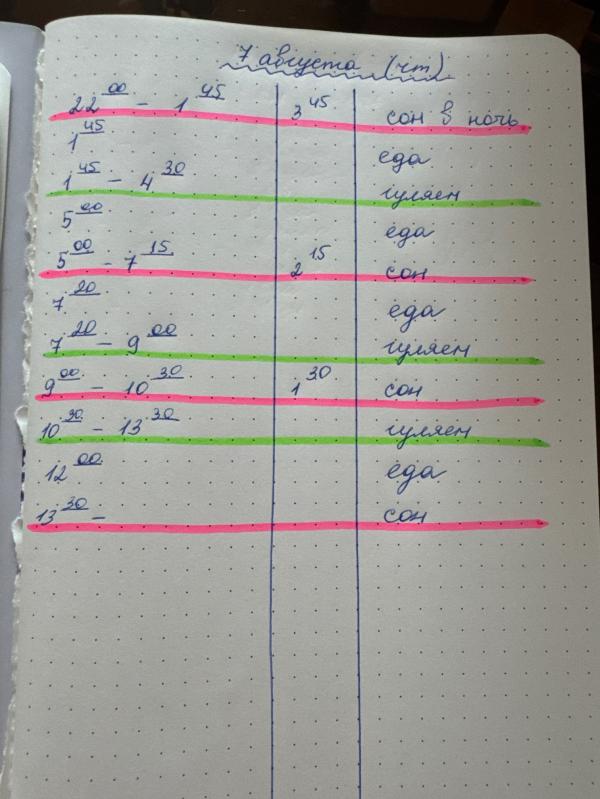 7 августа (чт)
22 00 - 1 45 3 45 сон в ночь
1 45 еда
1 45 - 4 30 гуляен
5 00 еда
5 00 - 7 15 2 15 сон
7 20 еда
7 20 - 9 00 гуляен
9 00 - 10 30 1 30 сон
10 30 - 13 30 гуляен
12 00 еда
13 30 - сон